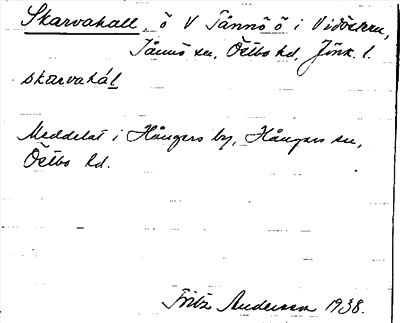 Skarvahall, ö V Tånnö ö i Vidöstern,
Tånnö sn, Östbo hd, Jönk. l.
skarvahál
Meddelat i Hångers by, Hångers sn,
Östbo hd.
Fritz Andersson 1938.